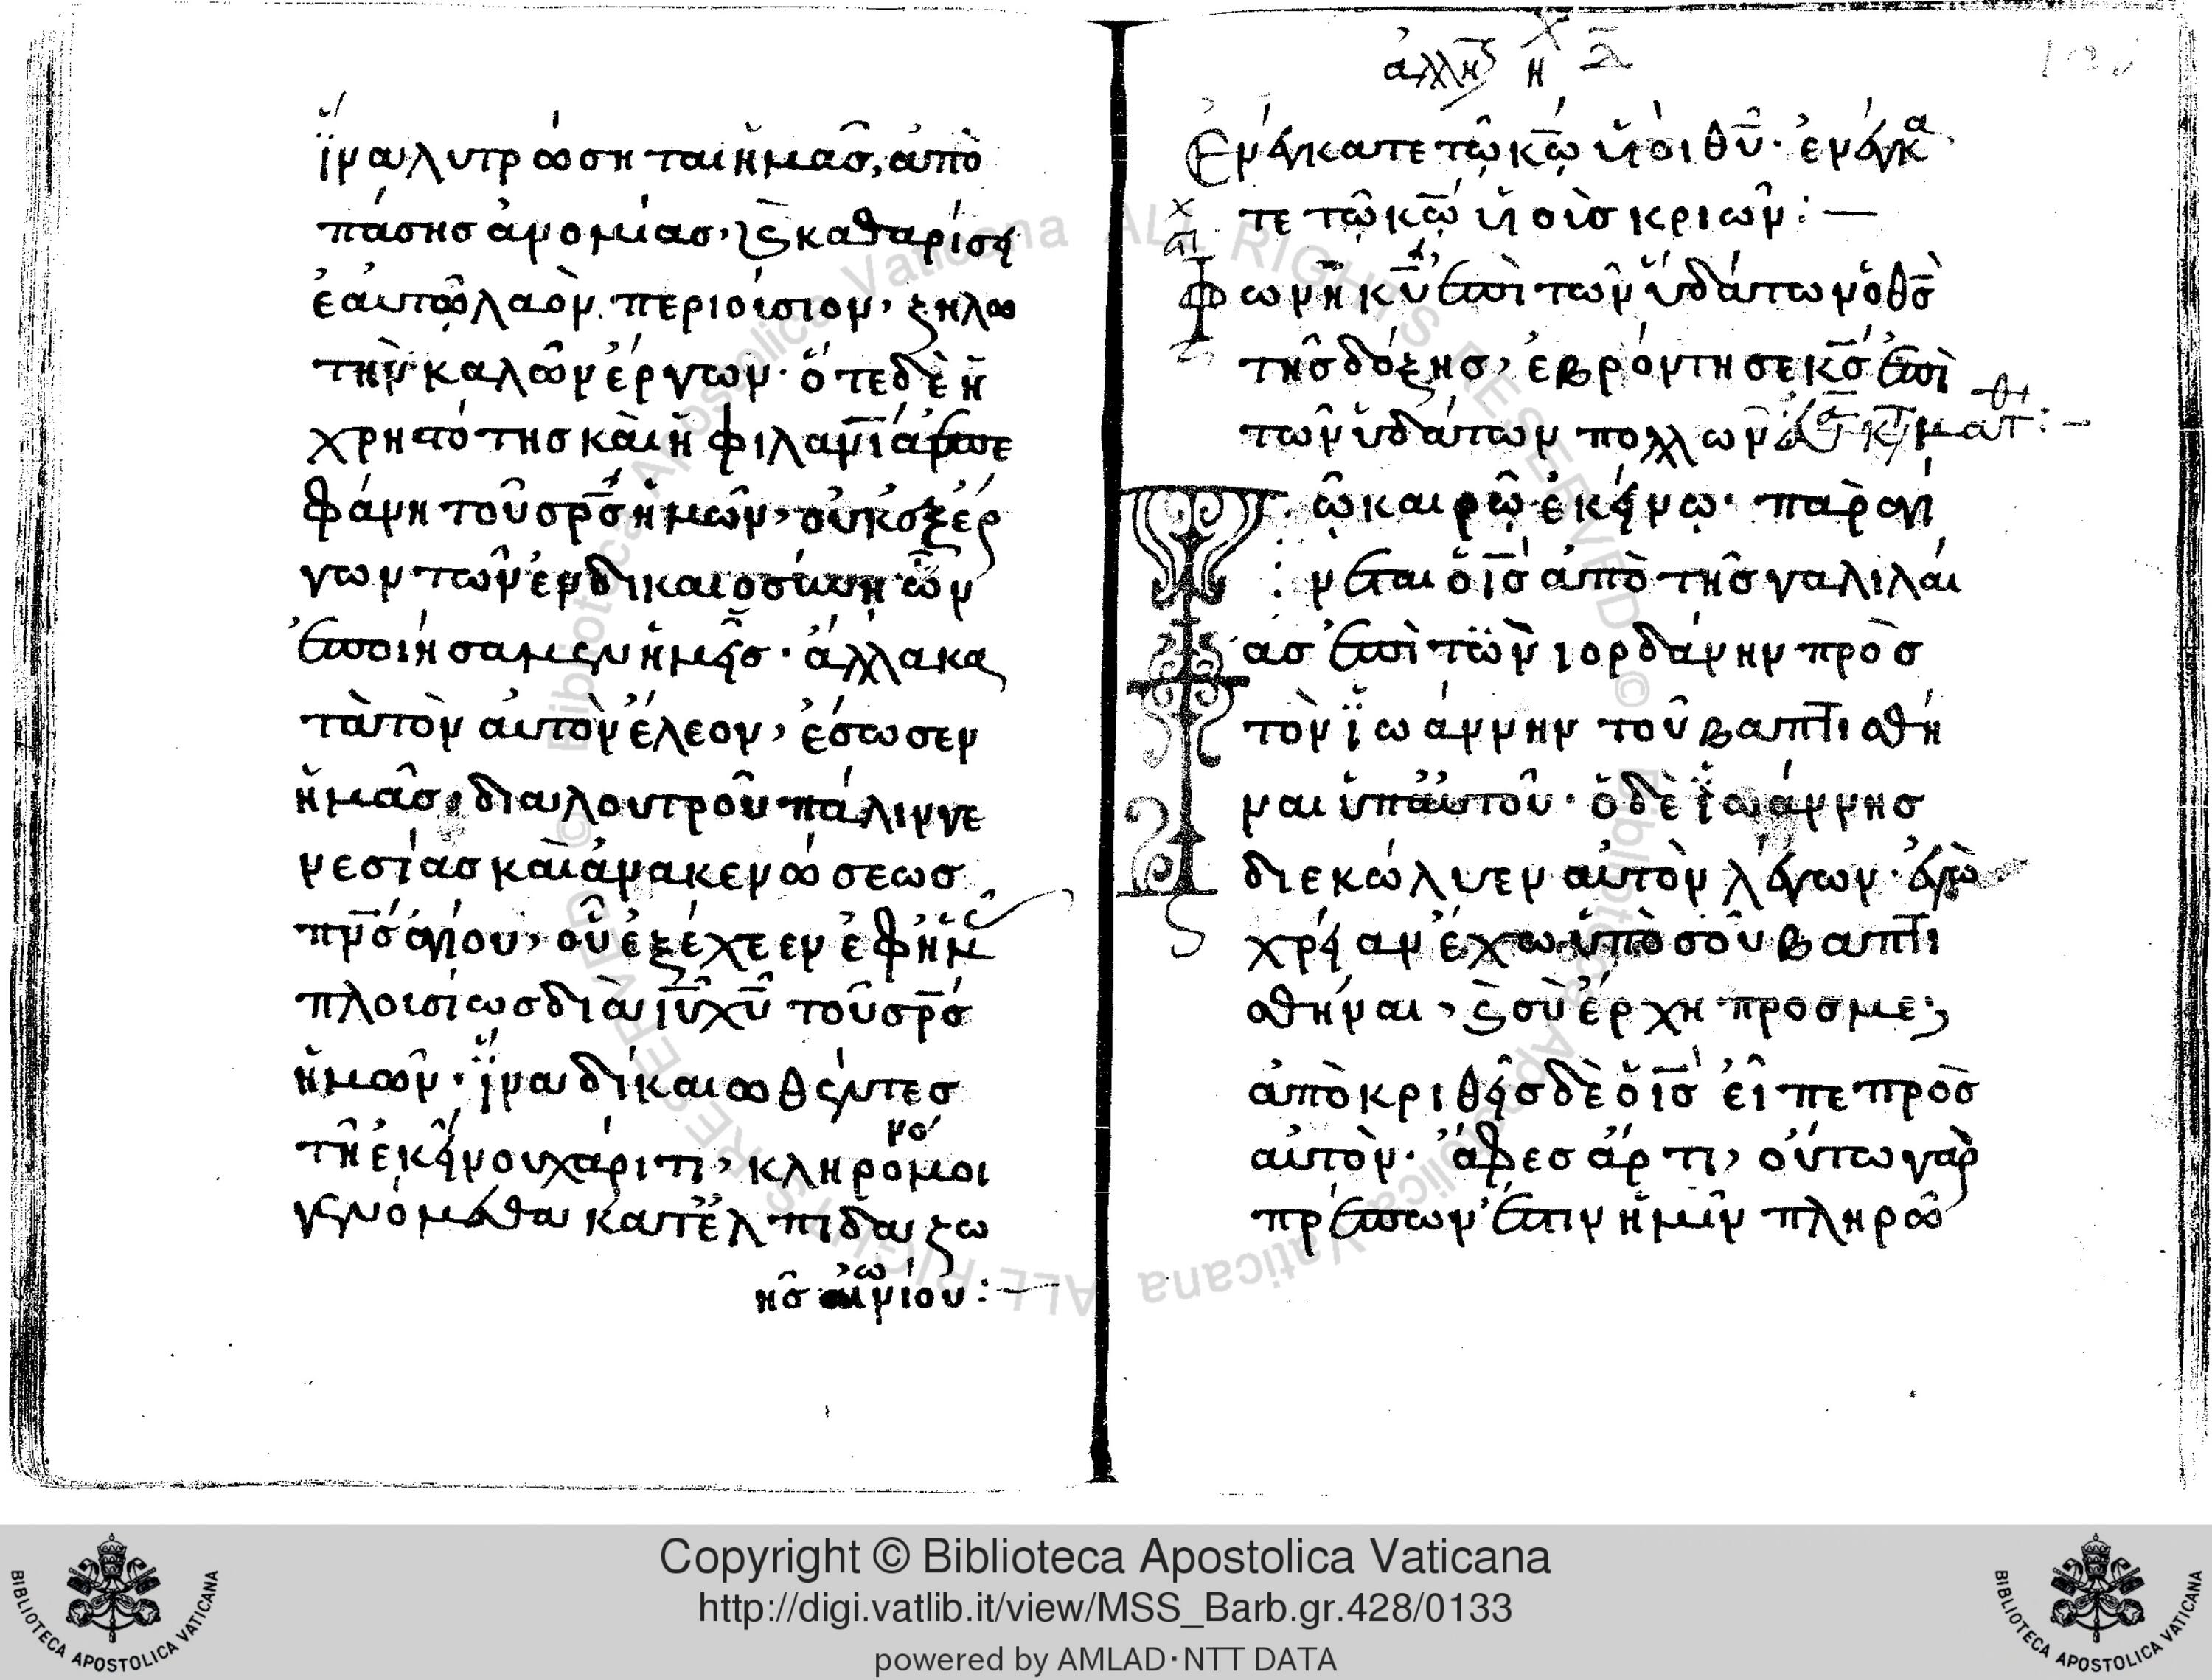 ἵνα λυτρώσηται ἡμᾶσ, ἀπὸ
πάσησ ἀνομίασ, καὶ καθαρίσει
ἑαυτῶ λαὸν περιούσιον, ζηλω
τὴν καλῶν ἔργων· ὅτε δὲ ἡ
χρηστότησ καὶ ἡ φιλαν̅ία ἐπε
φάνη τοῦ σρ̅σ ἡμῶν, οὐκ ἐξ ἔρ
γων τῶν ἐν δικαιοσύνη ὧν
ἐποιήσαμεν ἡμεῖσ· ἀλλα κα
τὰ τὸν αὐτὸν ἔλεον, ἔσωσεν
ἡμᾶσ, δια λουτροῦ πάλιγγε
νεσίασ καὶ ἀνακενώσεωσ
πν̅σ ἁγίου, οὗ ἐξέχεεν ἐφ ἡμ
πλουσίωσ διὰ ιυ̅ χυ̅ τοῦ σρ̅σ
ἡμῶν· ἵνα δικαιωθέντεσ
τῆ ἐκείνου χάριτι, κληρονόμοι
γενόμεθα κατ ἐλπίδα ζω
ῆσ αἰωνίου:—
ἀλλη η
Ἐνέγκατε τῶ κω̅ υἱοὶ θυ̅· ἐνέγκα
τε τῶ κω̅ υἱοὺσ κριῶν:—
Φωνὴ κυ̅ ἐπὶ τῶν ὑδάτων ὁ θσ̅
τῆσ δόξησ, ἐβρόντησε κσ̅ ἐπὶ
τῶν ὑδάτων πολλῶν ματθ:—
Τῶ καιρῶ ἐκείνω· παραγί
νεται ὁ ισ̅ ἀπὸ τῆσ γαλιλαί
ασ ἐπὶ τὼν ιορδάνην πρὸσ
τὸν ἰωάννην τοῦ βαπτισθῆ
ναι ὑπ αὐτοῦ· ὁ δὲ ἰωάννησ
διεκώλυεν αὐτὸν λέγων· ἐγὼ
χρείαν ἔχω ὑπὸ σοῦ βαπτι
σθῆναι, καὶ σὺ ἔρχη προσ με;
ἀπὸκριθεὶσ δὲ ὁ ισ̅ εἶπε πρὸσ
αὐτὸν· ἄφεσ ἄρτι, οὕτω γαρ
πρέπων ἐστιν ἡμῖν πληρῶ
Copyright © Biblioteca Apostolica Vaticana
http://digi.vatlib.it/view/MSS_Barb.gr.428/0133
powered by AMLAD·NTT DATA
BIBLIOTECA APOSTOLICA VATICANA
BIBLIOTECA APOSTOLICA VATICANA